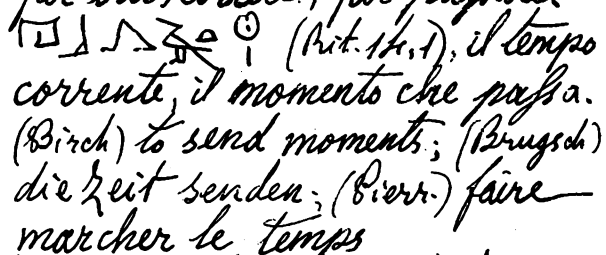 (Rit. 14, 1), il tempo
corrente, il momento che passa.
(Birch) to send moments; (Brugsch)
die Zeit senden; (Pierr.) faire
marcher le temps